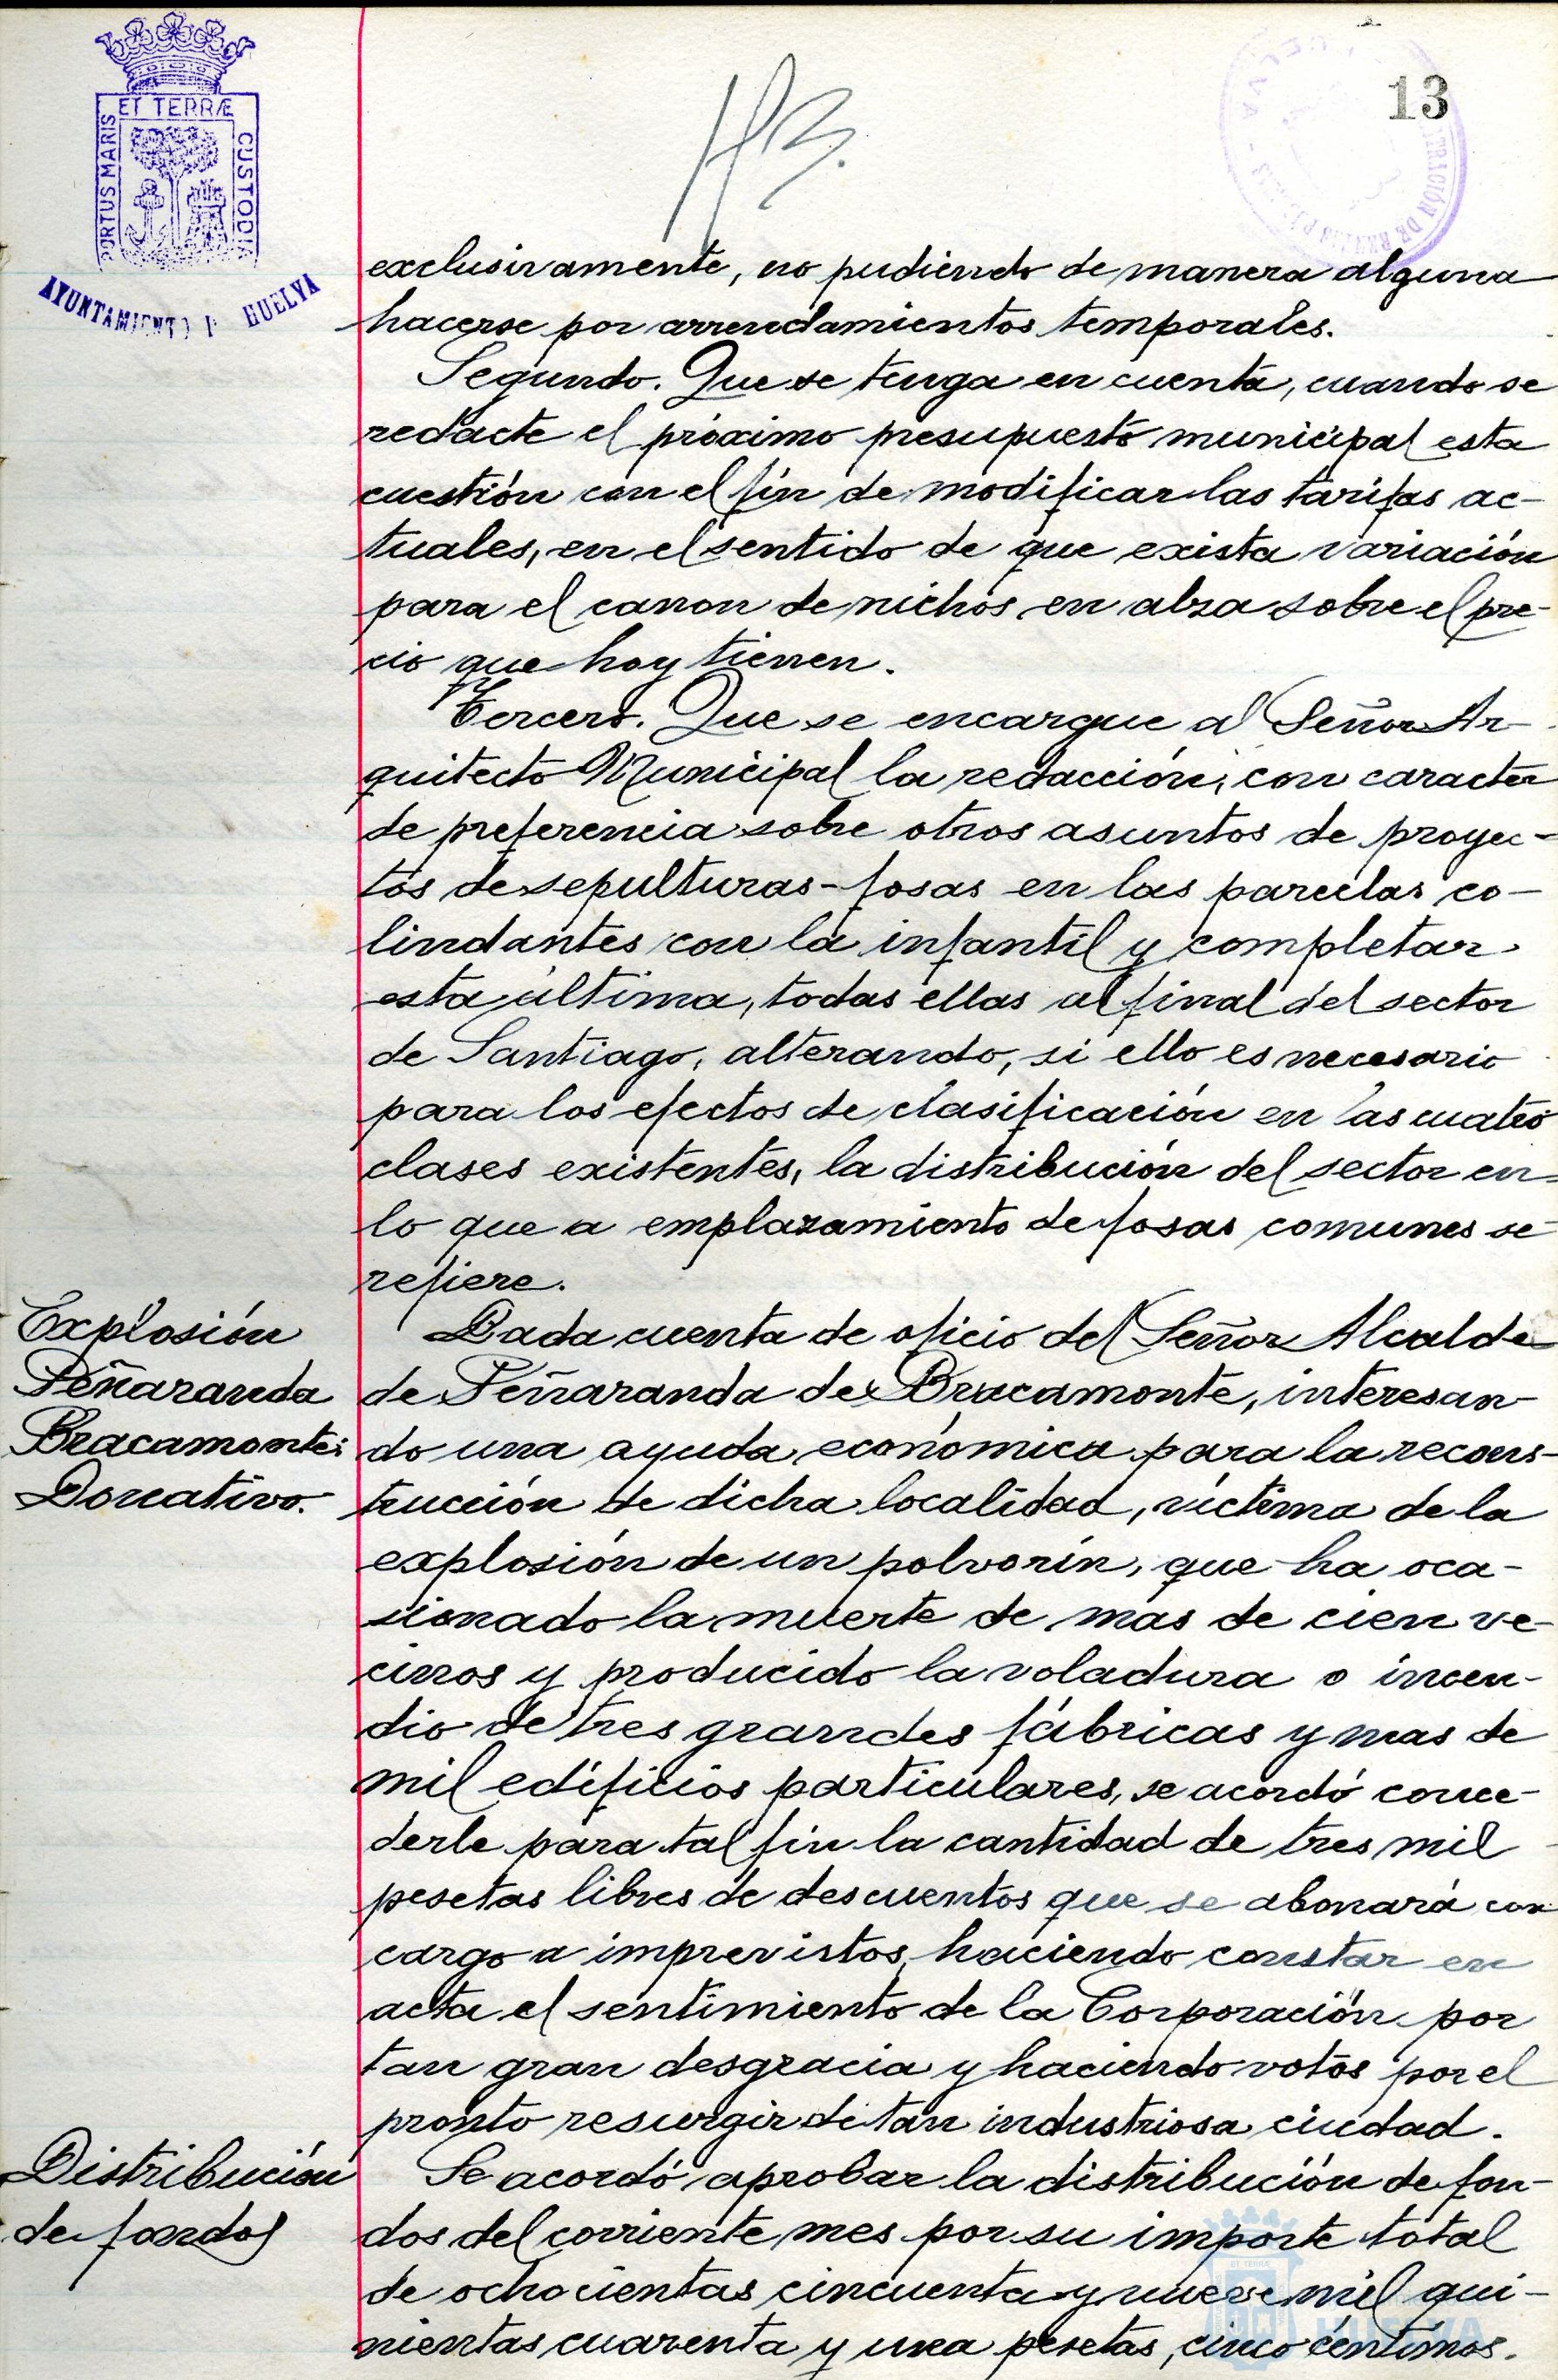 13
ET TERRÆ
PORTUS MARIS
CUSTODIA
AYUNTAMIENTO HUELVA
exclusivamente, no pudiendo de manera alguna
hacerse por arrendamientos temporales.
Segundo. Que se tenga en cuenta, cuando se
redacte el próximo presupuesto municipal esta
cuestión con el fin de modificar las tarifas ac-
tuales, en el sentido de que exista variación
para el canon de nichos en alza sobre el pre-
cio que hoy tienen.
Tercero. Que se encargue al Señor Ar-
quitecto Municipal la redacción, con caracter
de preferencia sobre otros asuntos de proyec-
tos de sepulturas-fosas en las parcelas co-
lindantes con la infantil y completar
esta última, todas ellas al final del sector
de Santiago, alterando, si ello es necesario
para los efectos de clasificación en las cuatro
clases existentes, la distribución del sector en
lo que a emplazamiento de fosas comunes se
refiere.
Explosión
Peñaranda
Bracamonte:
Donativo.
Dada cuenta de oficio del Señor Alcalde
de Peñaranda de Bracamonte, interesan-
do una ayuda económica para la recons-
trucción de dicha localidad, víctima de la
explosión de un polvorín, que ha oca-
sionado la muerte de mas de cien ve-
cinos y producido la voladura o incen-
dio de tres grandes fábricas y mas de
mil edificios particulares, se acordó conce-
derle para tal fin la cantidad de tres mil
pesetas libres de descuentos que se abonará con
cargo a imprevistos, haciendo constar en
acta el sentimiento de la Corporación por
tan gran desgracia y haciendo votos por el
pronto resurgir de tan industriosa ciudad.
Distribución
de fondos
Se acordó aprobar la distribución de fon-
dos del corriente mes por su importe total
de ochocientas cincuenta y nueve mil qui-
nientas cuarenta y una pesetas, cinco céntimos.
HUELVA